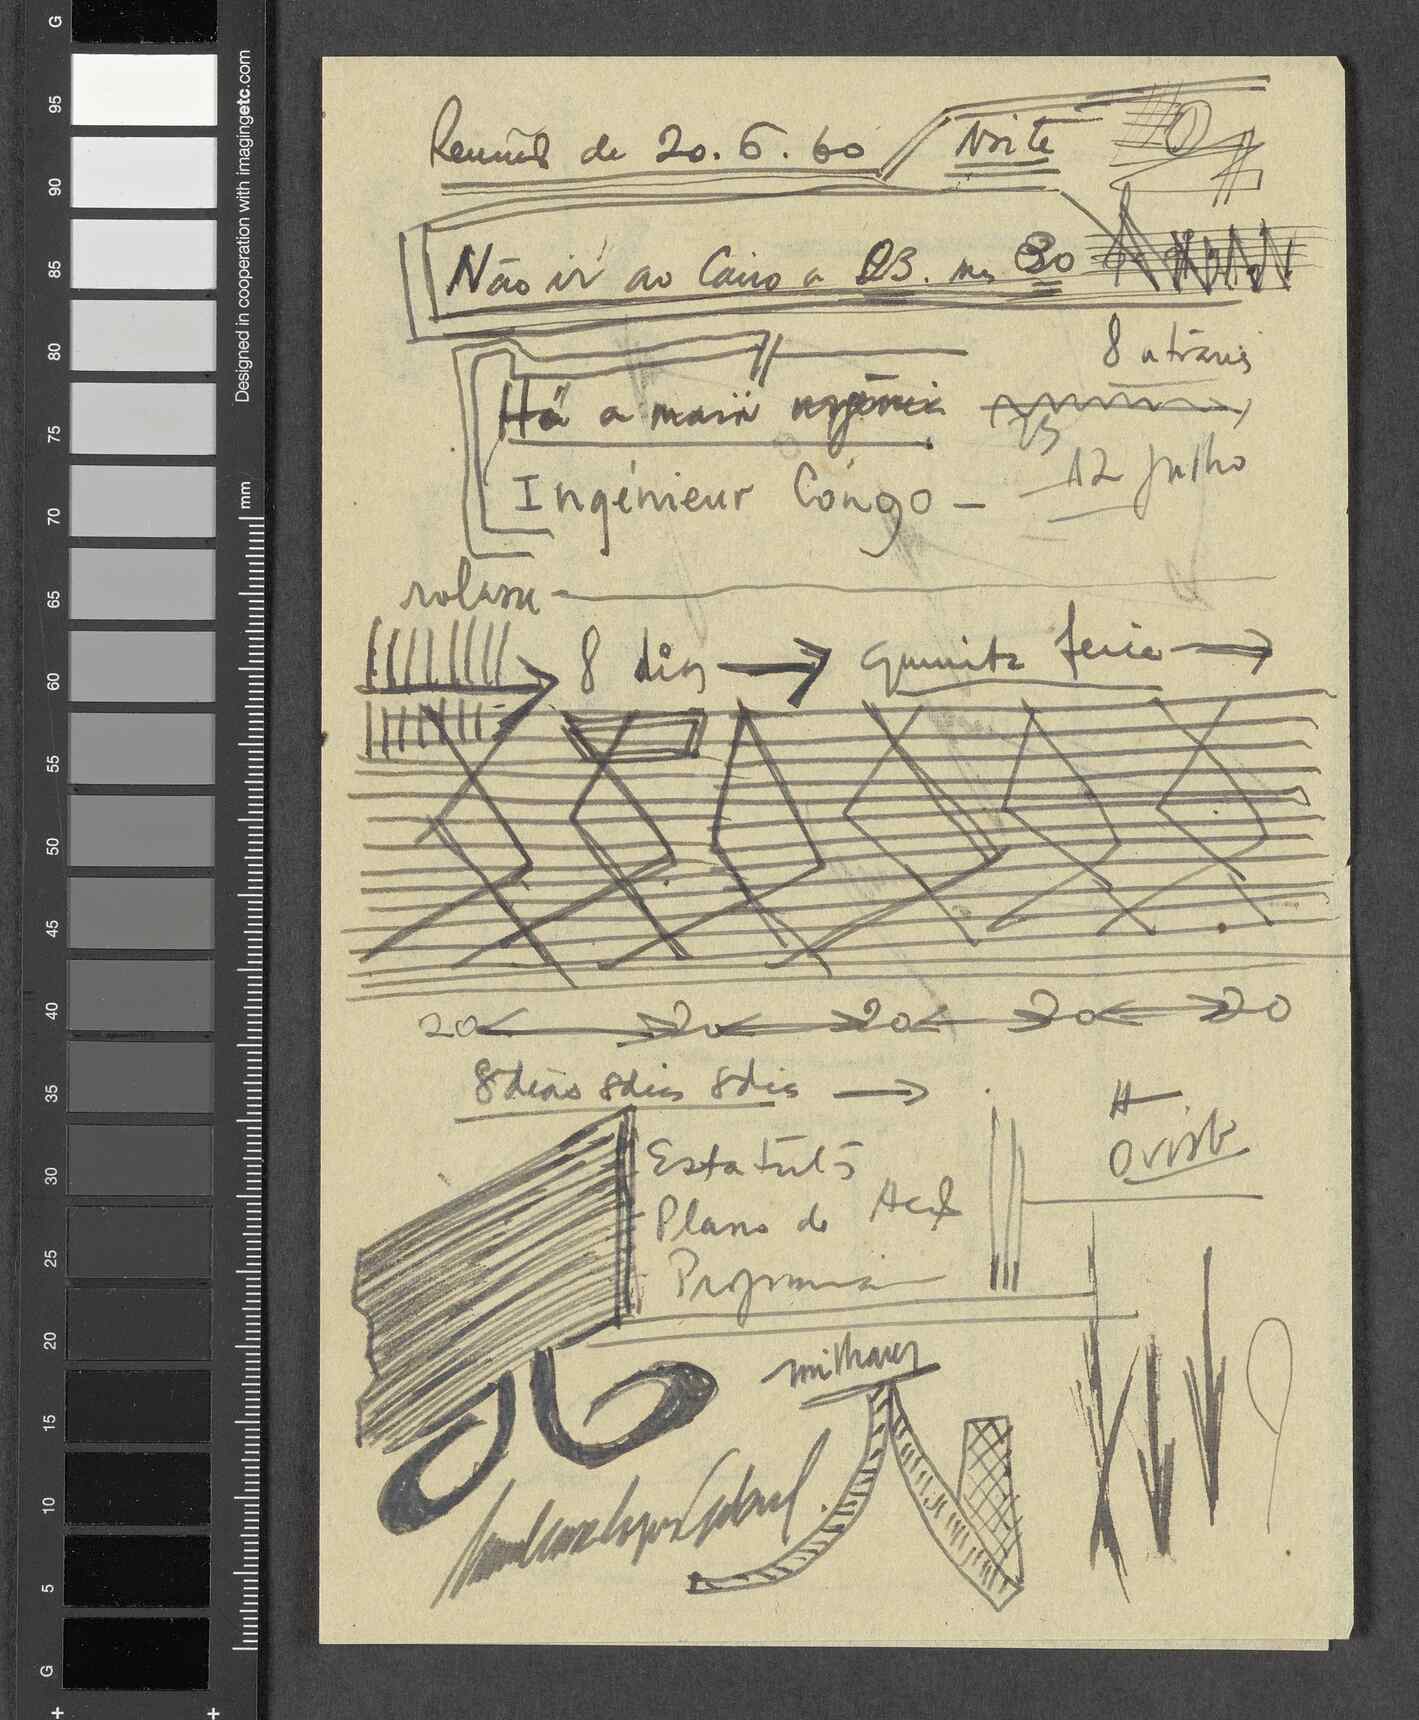 Reunião de 20.6.60 Noite
Não ir ao Cairo a 23. mas 30
8 atravis
Há a maior urgência
12 Julho
Ingénieur Cóngo –
8 dias → quinta feira →
20 20 20 20 20
8 dias 8 dias 8 dias →
Estatutos
Plano de Acção
Programa
milhares
Amilcar Lopes Cabral
G
95
90
85
80
75
70
65
60
55
50
45
40
35
30
25
20
15
10
5
G
Designed in cooperation with imagingetc.com
mm